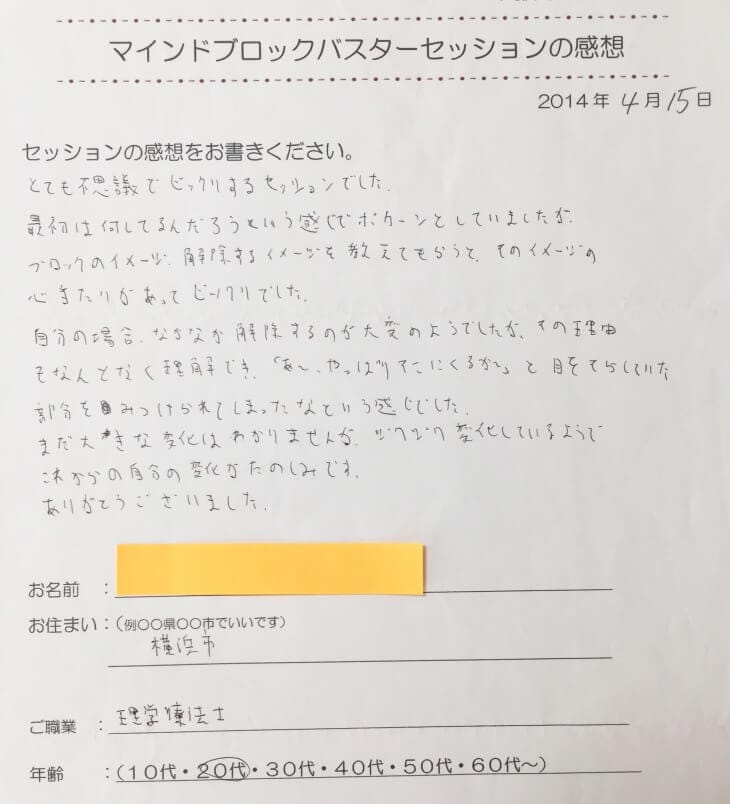 マインドブロックバスターセッションの感想
2014年 4月15日
セッションの感想をお書きください。
とても不思議でビックリするセッションでした。
最初は何してるんだろうという感じでポカーンとしていましたが、
ブロックのイメージ、解除するイメージを教えてもらうと、そのイメージの
心あたりがあってビックリでした。
自分の場合、なかなか解除するのが大変のようでしたが、その理由
もなんとなく理解でき、「あ〜、やっぱりそこにくるか〜」と目をそらしていた
部分をみつけられてしまったなという感じでした。
まだ大きな変化はわかりませんが、ジワジワ変化しているようで
これからの自分の変化がたのしみです。
ありがとうございました。
お名前 :
お住まい:(例〇〇県〇〇市でいいです)
横浜市
ご職業 : 理学療法士
年齢 :(10代・20代・30代・40代・50代・60代〜)